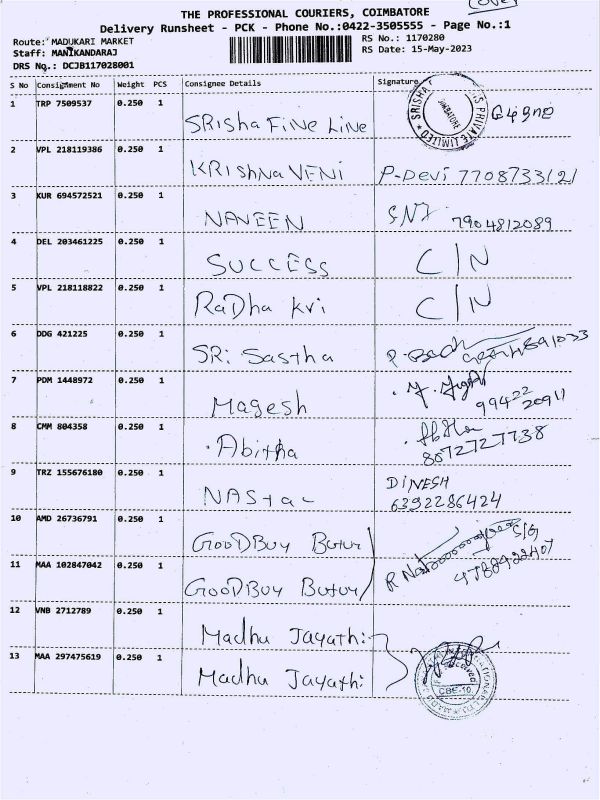 (Over)
THE PROFESSIONAL COURIERS, COIMBATORE
Delivery Runsheet - PCK - Phone No.:0422-3505555 - Page No.:1
Route: MADUKARI MARKET RS No.: 1170280
Staff: MANIKANDARAJ RS Date: 15-May-2023
DRS No.: DCJB117028001
S No Consignment No Weight PCS Consignee Details Signature
1 TRP 7509537 0.250 1 SRisha Fine Line
2 VPL 218119386 0.250 1 KRishna VENi P-Devi 7708733121
3 KUR 694572521 0.250 1 NAVEEN 7904812089
4 DEL 203461225 0.250 1 SUCCESS C/N
5 VPL 218118822 0.250 1 RaDha kri C/N
6 DDG 421225 0.250 1 SRi Sastha
7 PDM 1448972 0.250 1 Magesh 99422 20911
8 CMM 804358 0.250 1 Abitha 8072727738
9 TRZ 155676180 0.250 1 NAStac DINESH 6392286424
10 AMD 26736791 0.250 1 GooDBuy
11 MAA 102847042 0.250 1 GooDBuy
12 VNB 2712789 0.250 1 Madhu Jayathi
13 MAA 297475619 0.250 1 Madhu Jayathi CBE-10